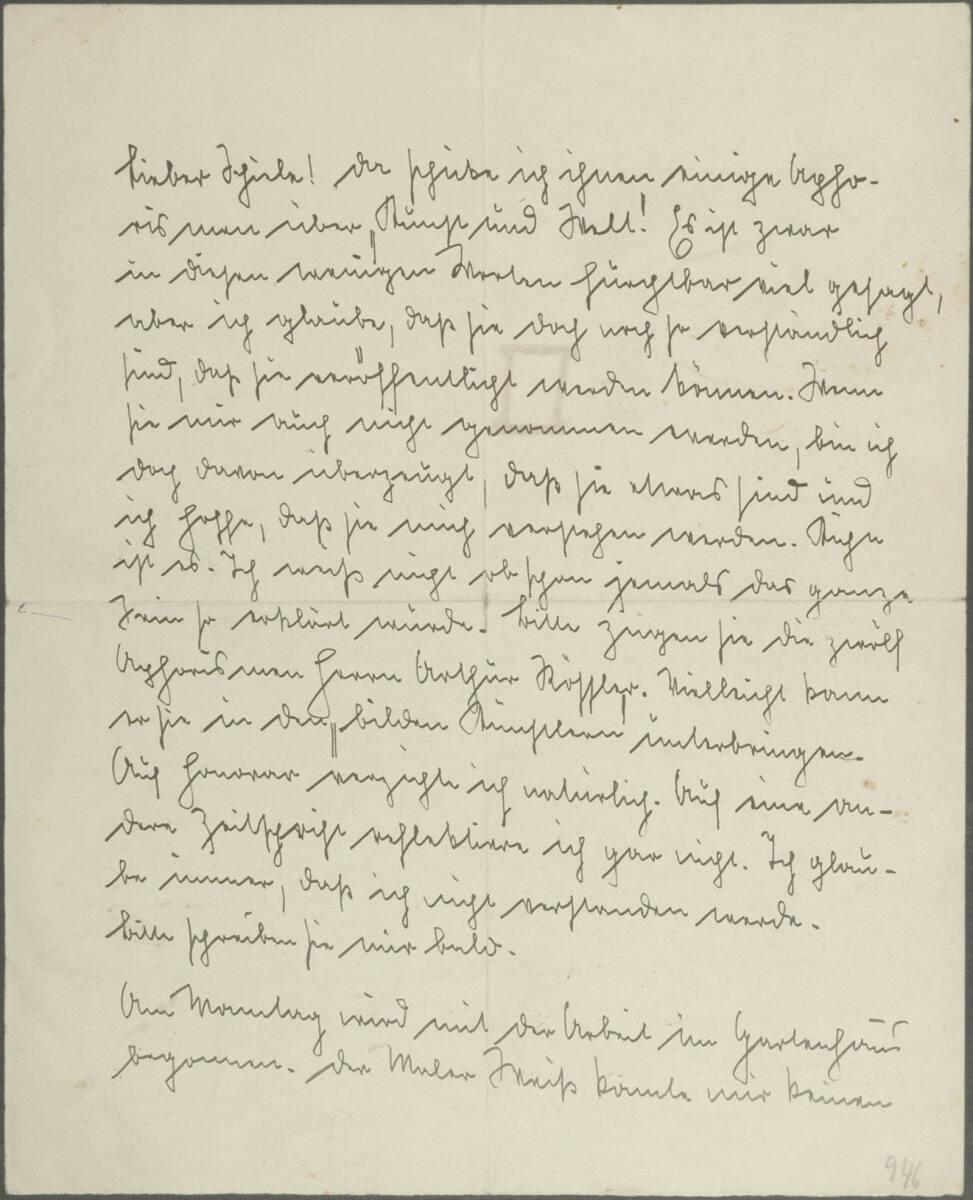 Lieber Schiele! Da schicke ich ihnen einige Apho-
rismen über „Kunst und Welt"! Es ist zwar
in diesen wenigen Worten furchtbar viel gesagt,
aber ich glaube, daß sie doch noch so verständlich
sind, daß sie veröffentlicht werden können. Wenn
sie mir auch nicht genommen werden, bin ich
doch davon überzeugt, daß sie etwas sind und
ich hoffe, daß sie mich verstehen werden.
ist es. Ich weiß nicht ob schon jemals das ganze
Sein so erklärt wurde. Bitte zeigen sie die zwölf
Aphorismen Herrn Arthur Rössler. Vielleicht kann
er sie in den „bilden Künstlern" unterbringen.
Auf Honorar verzichte ich natürlich. Auf eine an-
dere Zeitschrift reflektiere ich gar nicht. Ich glau-
be immer, daß ich nicht verstanden werde.
Bitte schreiben sie mir bald.
Am Montag wird mit der Arbeit im Gartenhaus
begonnen. Der Maler Weiß konnte mir keinen
946